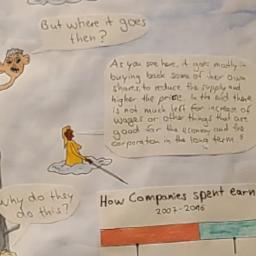 But where it goes
then?
As you see here, it goes mostly in
buying back some of her own
shares, to reduce the supply and
higher the price. In the end there
is not much left for increase of
wages or other things that are
good for the economy and the
corporation in the long term.
Why do they
do this?
How Companies spent earn
2007-2016